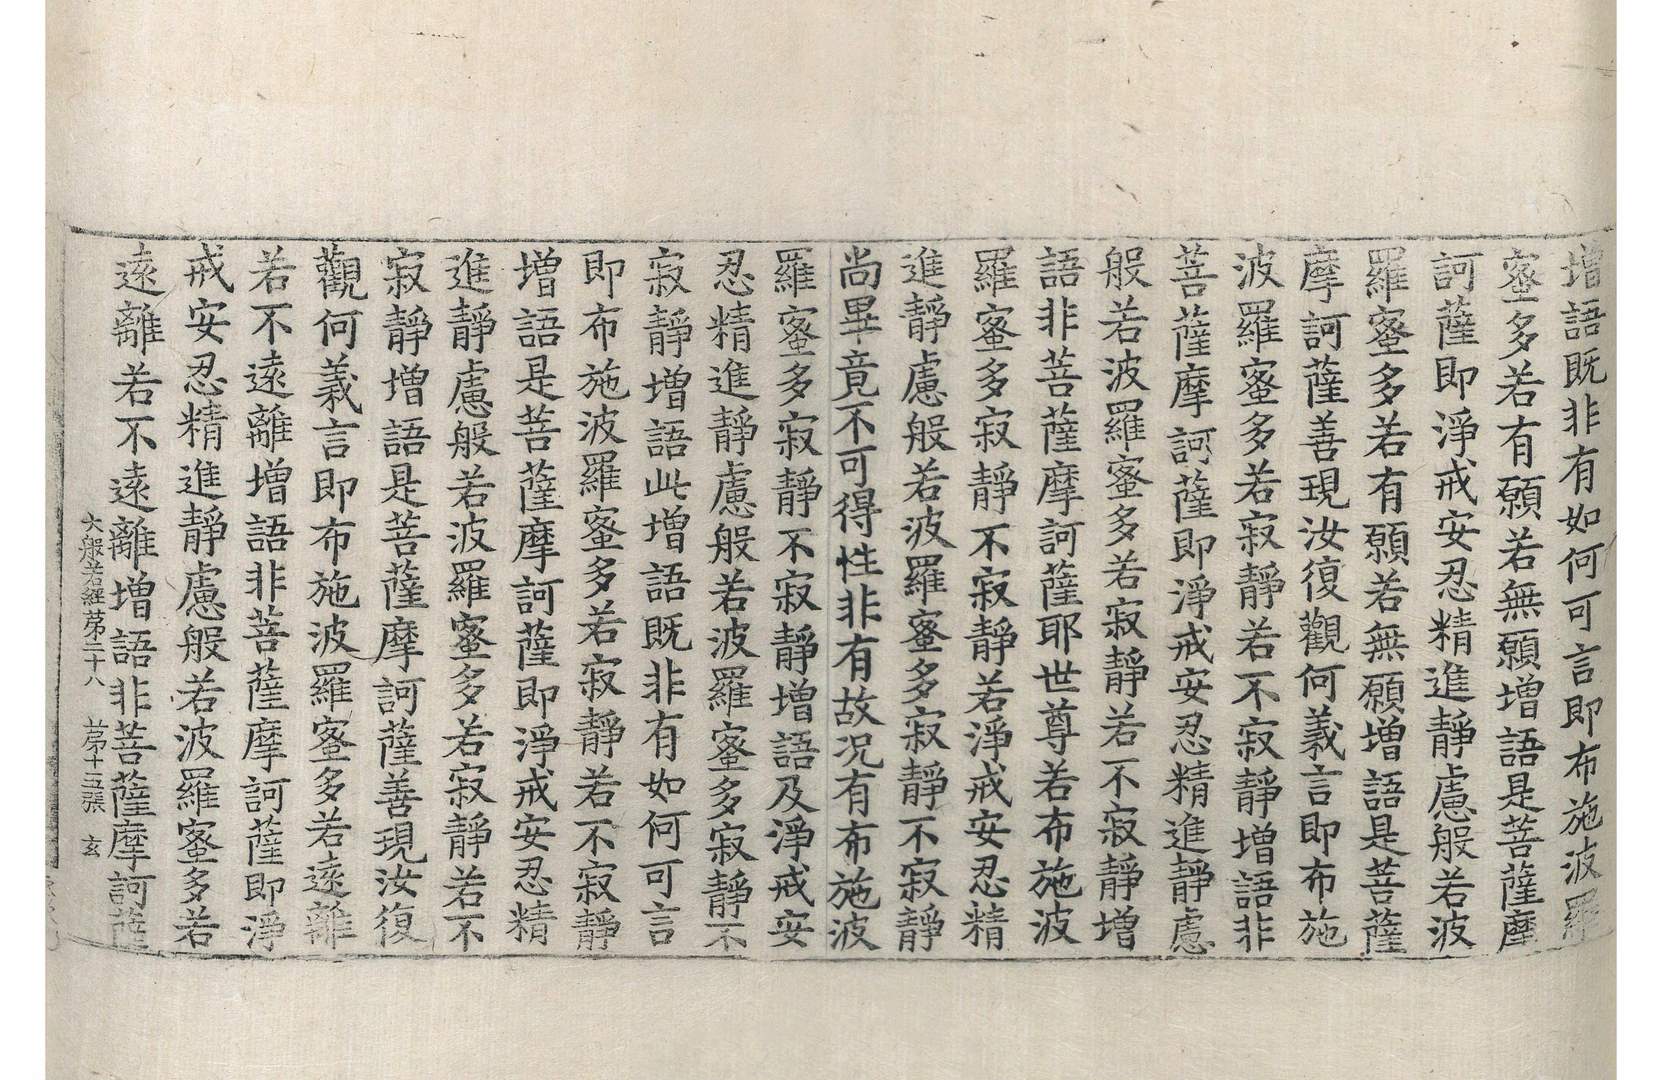 增語既非有如何可言即布施波羅
蜜多若有願若無願增語是菩薩摩
訶薩即淨戒安忍精進靜慮般若波
羅蜜多若有願若無願增語是菩薩
摩訶薩善現汝復觀何義言即布施
波羅蜜多若寂靜若不寂靜增語非
菩薩摩訶薩即淨戒安忍精進靜慮
般若波羅蜜多若寂靜若不寂靜增
語非菩薩摩訶薩耶世尊若布施波
羅蜜多寂靜不寂靜若淨戒安忍精
進靜慮般若波羅蜜多寂靜不寂靜
尚畢竟不可得性非有故况有布施波
羅蜜多寂靜不寂靜增語及淨戒安
忍精進靜慮般若波羅蜜多寂靜不
寂靜增語此增語既非有如何可言
即布施波羅蜜多若寂靜若不寂靜
增語是菩薩摩訶薩即淨戒安忍精
進靜慮般若波羅蜜多若寂靜若不
寂靜增語是菩薩摩訶薩善現汝復
觀何義言即布施波羅蜜多若遠離
若不遠離增語非菩薩摩訶薩即淨
戒安忍精進靜慮般若波羅蜜多若
遠離若不遠離增語非菩薩摩訶薩
大般若經第二十八 第十五張 玄